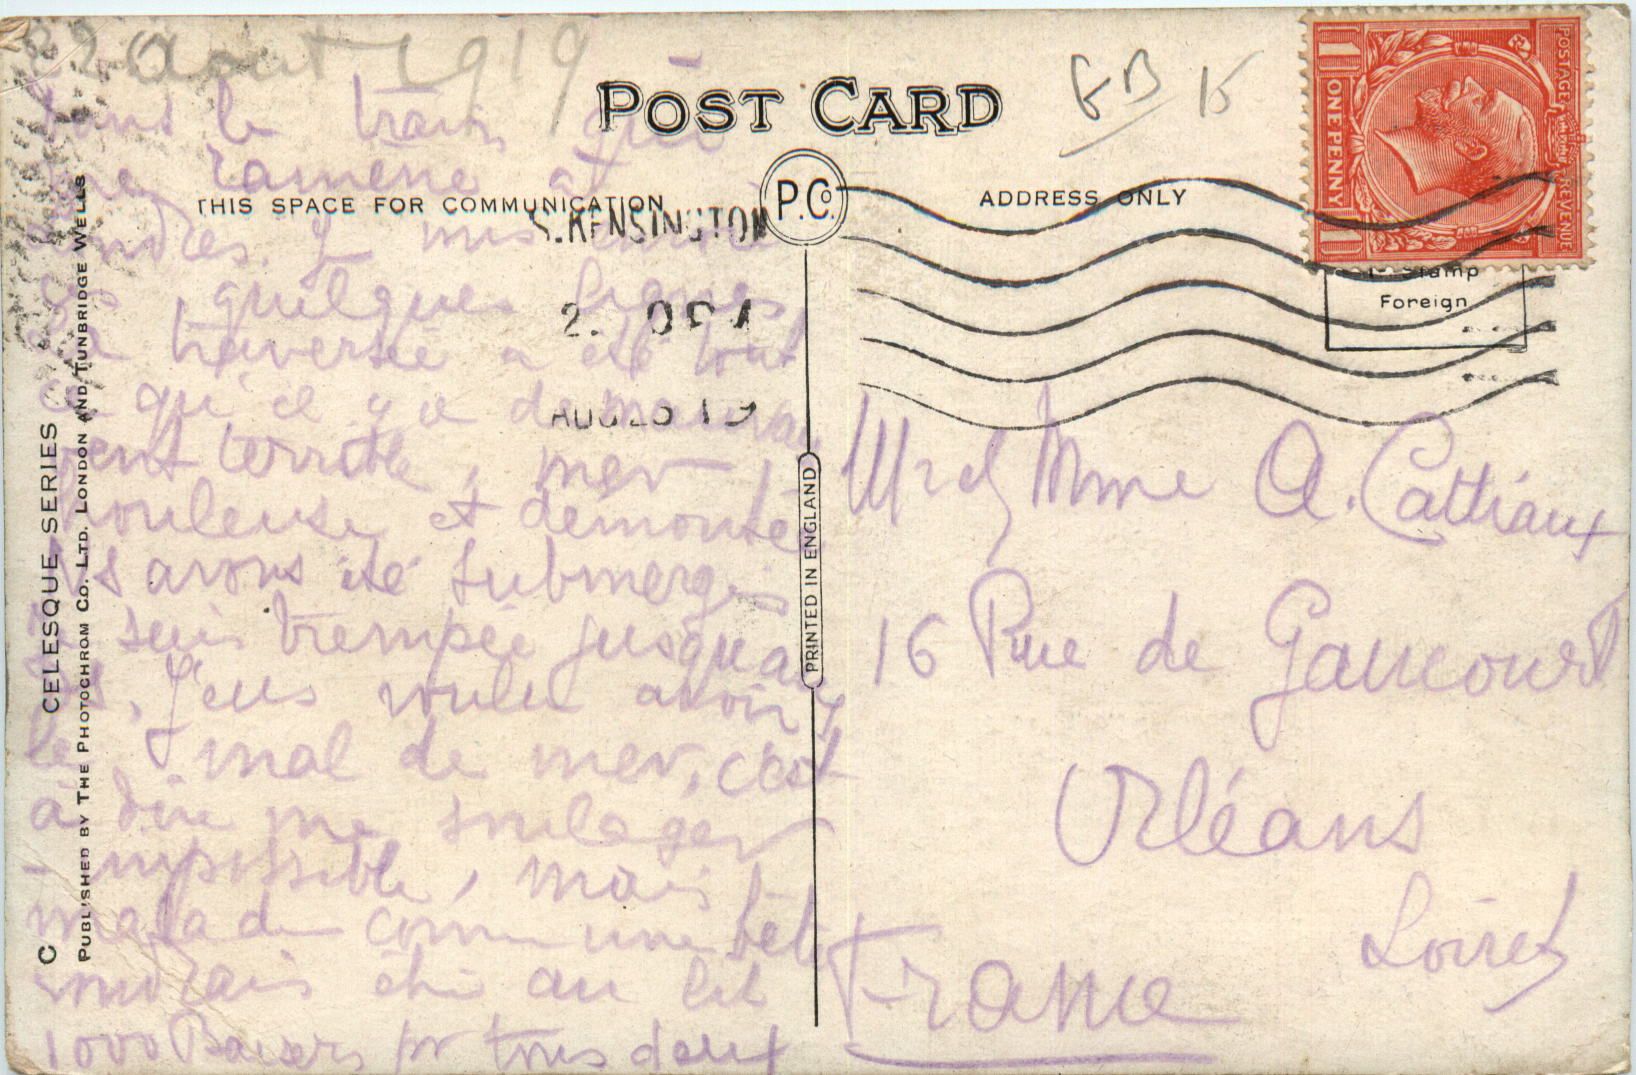 22 Août 1919
POST CARD
GB 15
THIS SPACE FOR COMMUNICATION
ADDRESS ONLY
P.Co.
POSTAGE REVENUE
ONE PENNY
1
1
Stamp
Foreign
S. KENSINGTON
2.
AUG 19
dans le train qui
me ramène à
Londres. Je
quelques lignes
La traversée a été tout
ce qu'il y a de mauvais
vent terrible, mer
houleuse et démontée
Ns avons été submergés
je suis trempée jusqu'aux
os, j'eus voulu avoir
le mal de mer, c'est
à dire me soulager
impossible, mais
malade comme une bête
voudrais être au lit
1000 Baisers pr tous deux
Mr et Mme A. Cattiaux
16 Rue de Gaucourt
Orléans
Loiret
France
PRINTED IN ENGLAND
C CELESQUE SERIES
PUBLISHED BY THE PHOTOCHROM CO. LTD. LONDON AND TUNBRIDGE WELLS